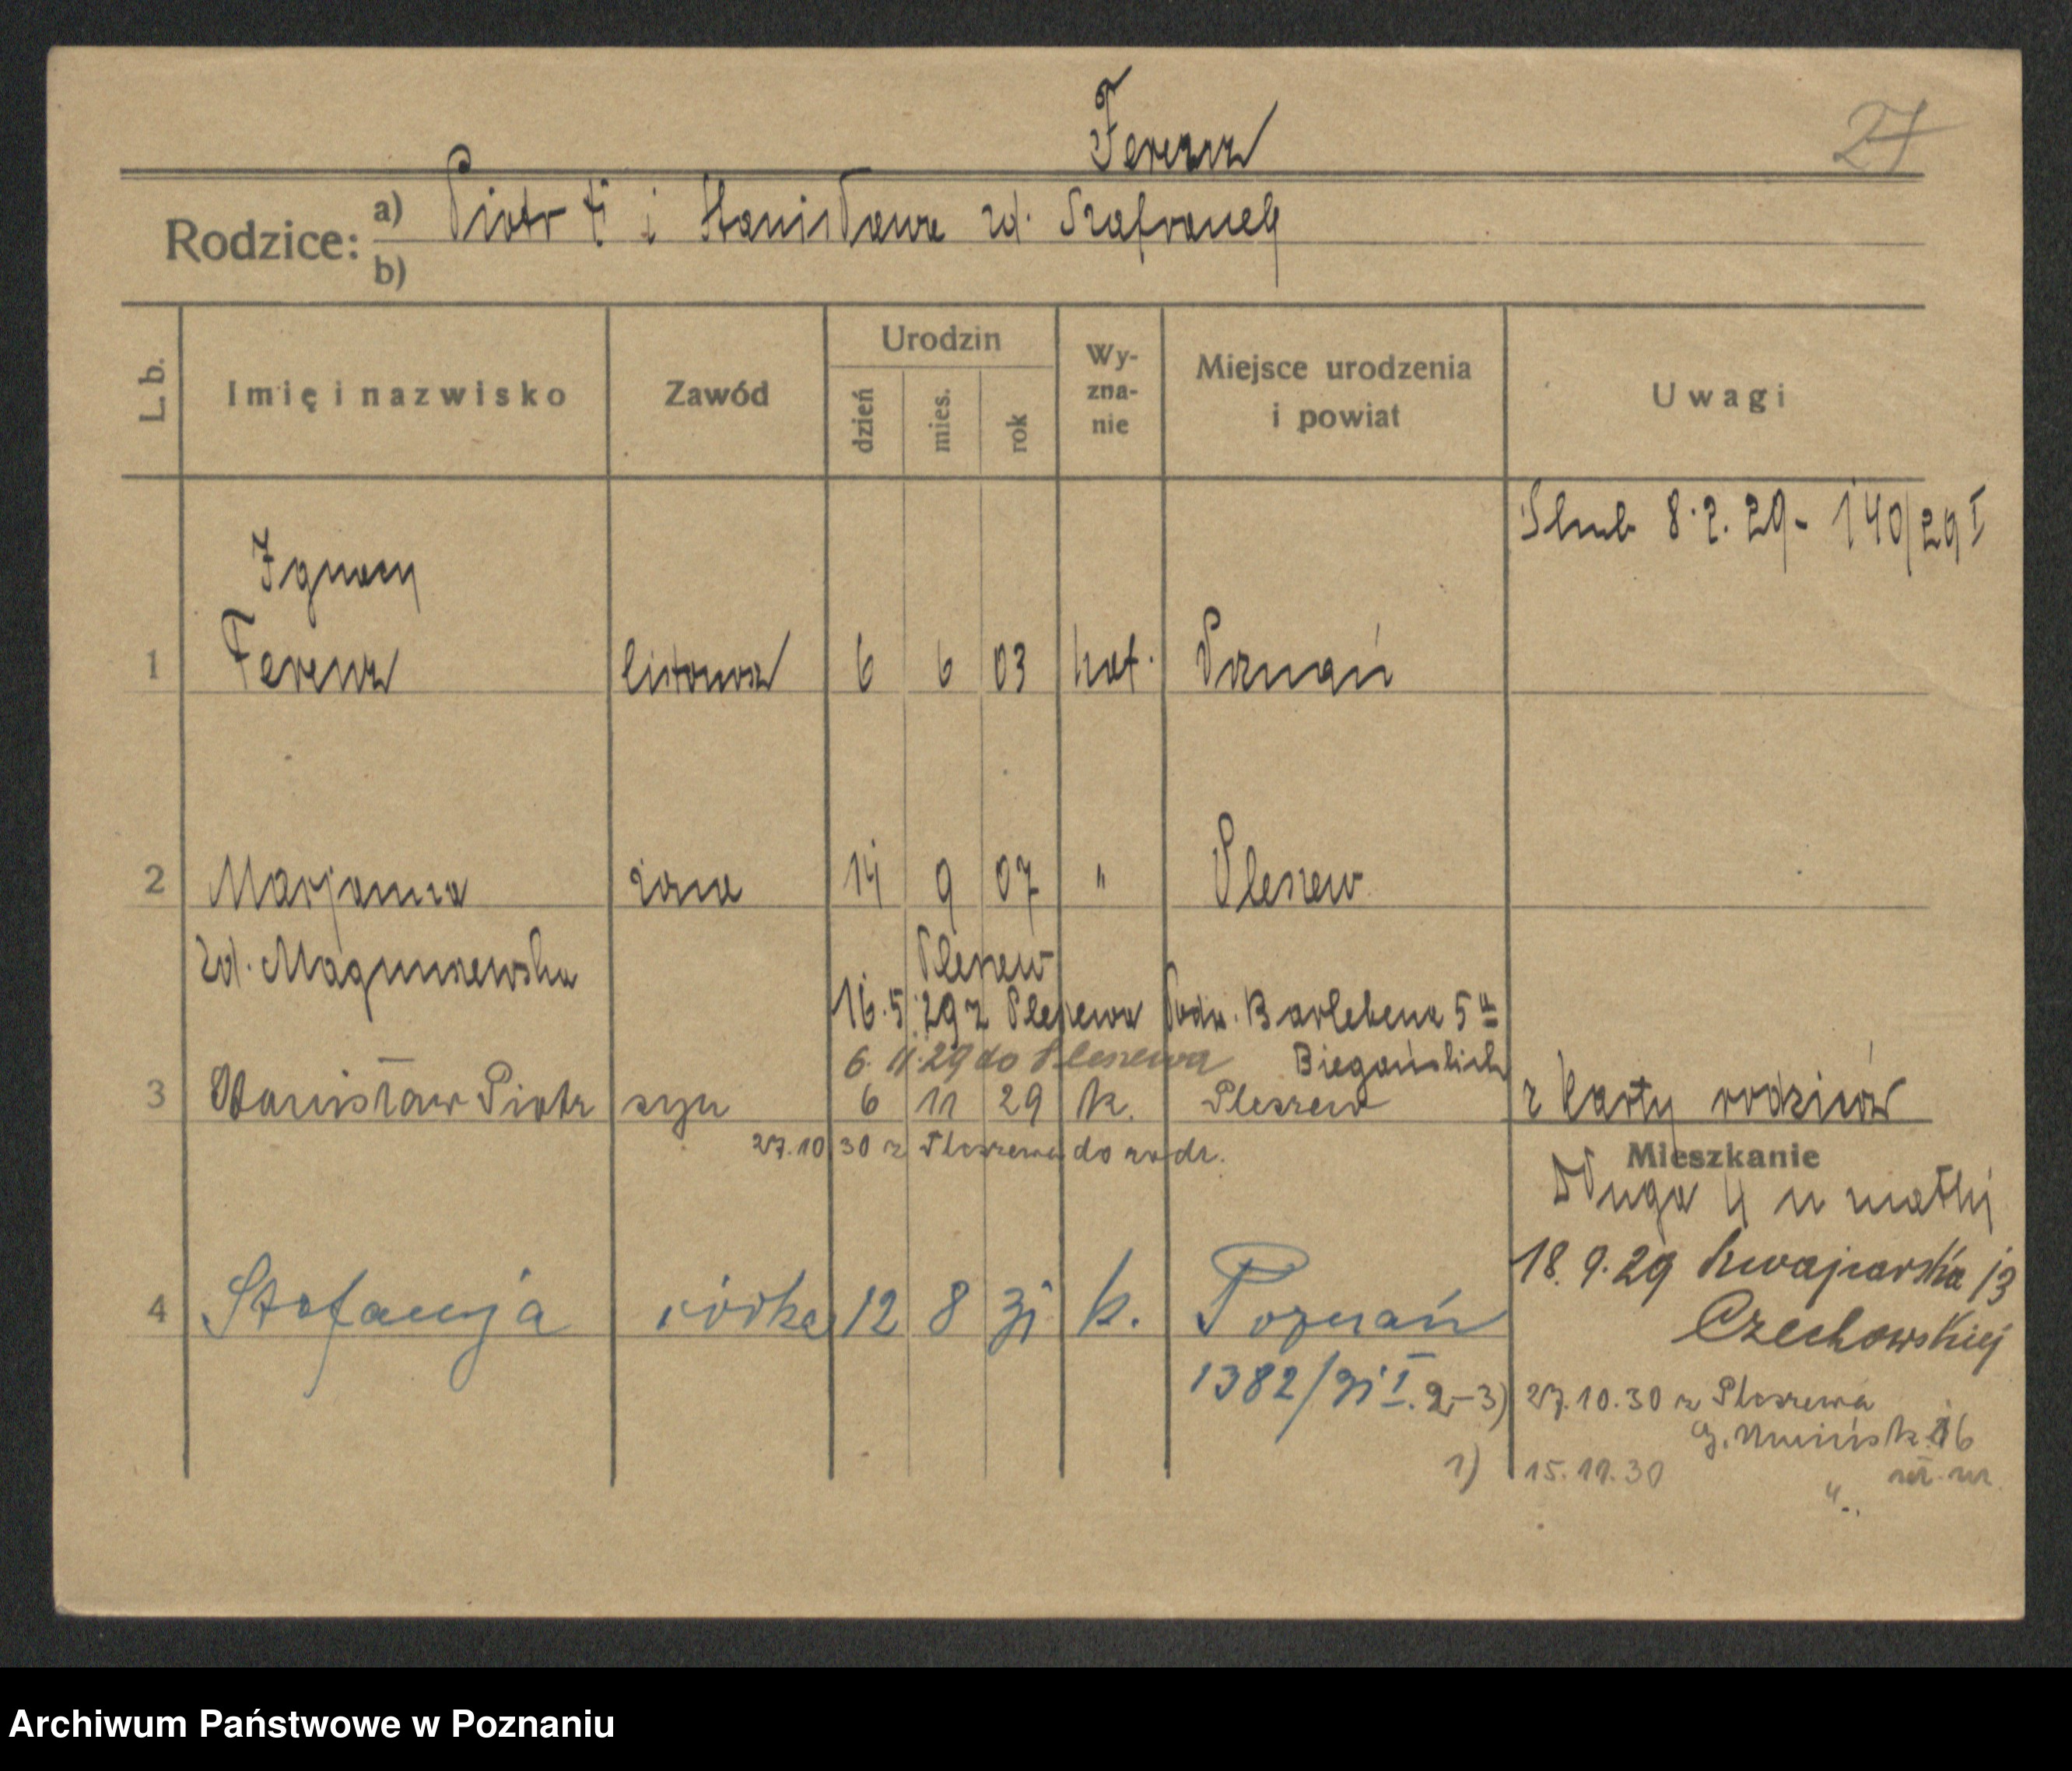 Ferenz
27
Rodzice: a) Piotr † i Stanisława zd. Szafranek
b)
L. b. Imię i nazwisko Zawód Urodzin dzień mies. rok Wyznanie Miejsce urodzenia i powiat Uwagi
Slub 8.2.29 - 140/29 I
Ignacy
1 Ferenz listonosz 6 6 03 kat. Poznań
2 Marjanna żona 14 9 07 " Pleszew
zd. Maguszewska Pleszew
16.5.29 z Pleszewa Podw. Barlebena 5
6.11.29 do Pleszewa Biegańskich
3 Stanisław Piotr syn 6 11 29 k. Pleszew z karty rodziców
27.10.30 z Pleszewa do rodz.
Mieszkanie
Długa 4 u matki
18.9.29 Szwajcarska 13
Czechowskiej
4 Stefanja córka 12 8 31 k. Poznań
1382/31 I. 2-3) 27.10.30 z Pleszewa
16
1) 15.10.30 "
Archiwum Państwowe w Poznaniu